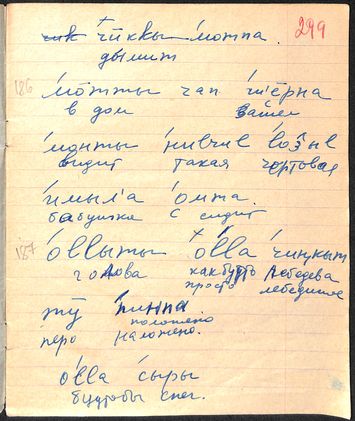 299
чӣккы мотпа.
дымит
186 мо̄тты чап ше̄рна
в дом зашел
монты нивчив ло̄зне
видит такая чортовая
имыл'а о̄мта.
бабушка сидит
187 о̄ллыты о̄лла чиӈкыт
голова как будто лебедева
просто лебединое
тӯ пинпа
положено
перо наложено.
о̄лла сыры
будтобы снег.